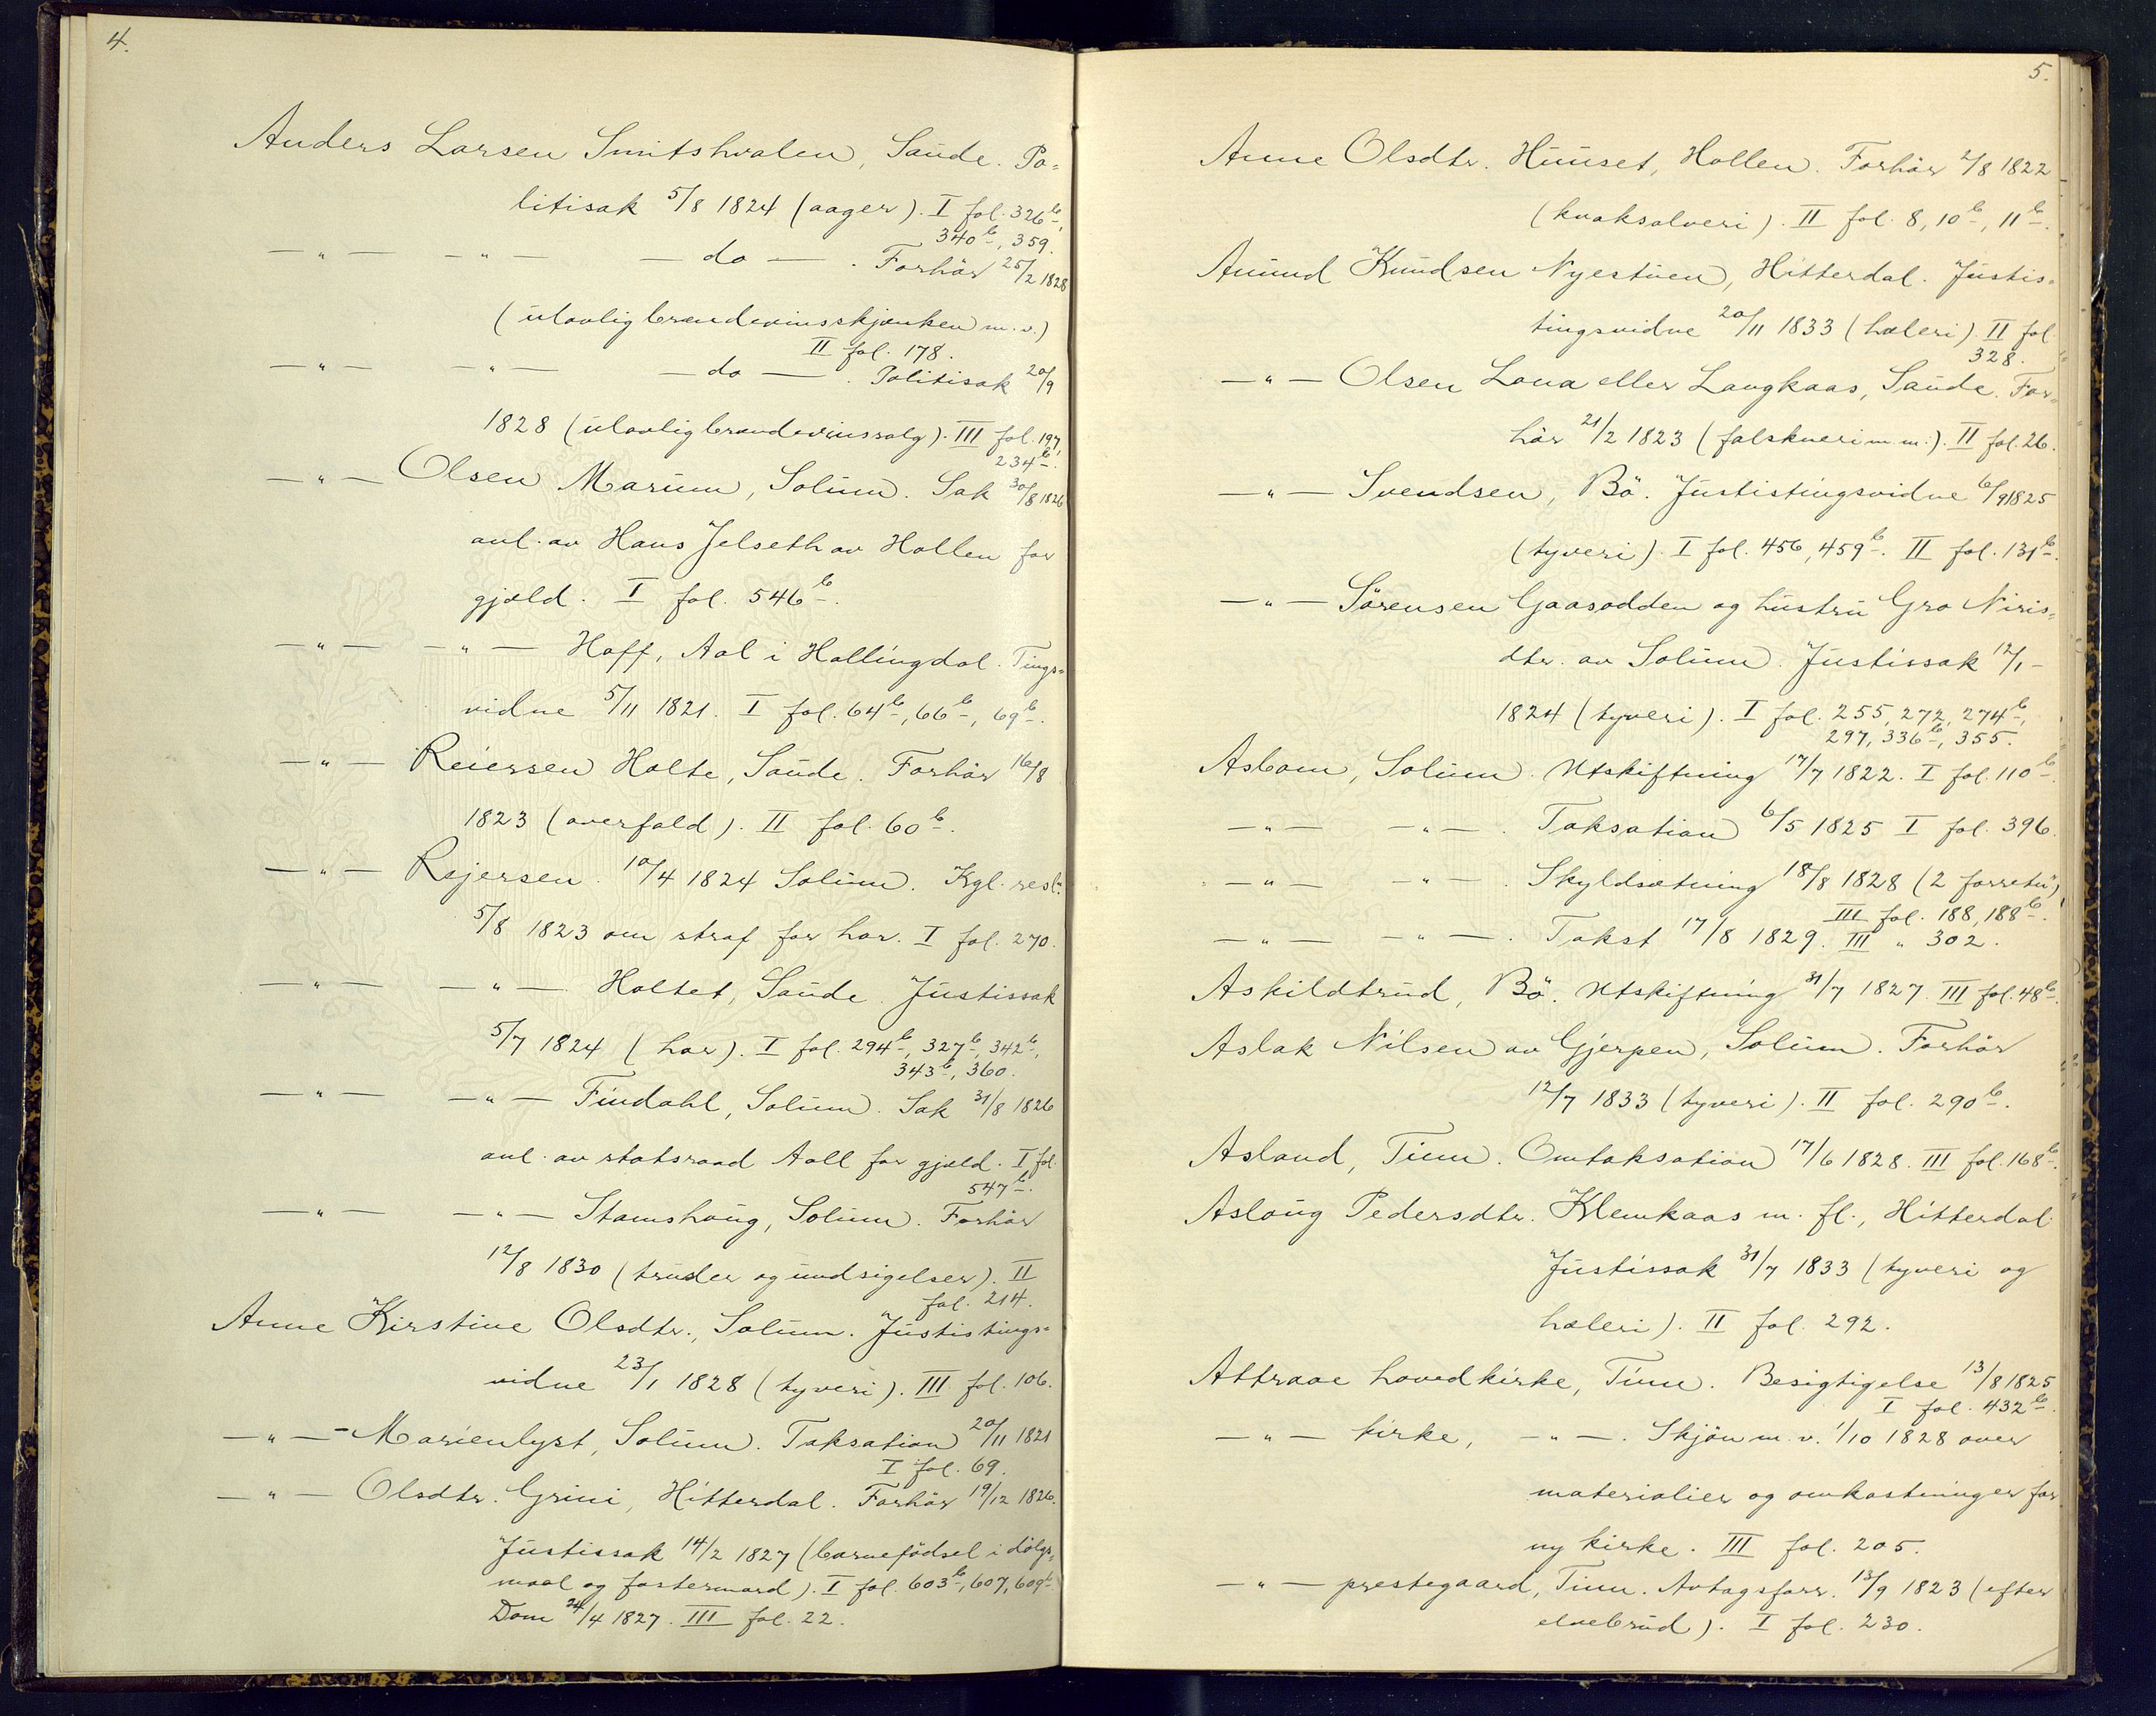 4.
Anders Larsen Smitshvalen, Saude. Po-
litisak 5/8 1824 (aager). I fol. 326b,
340b, 359.
— " — — " — — do — . Forhör 25/2 1828
(ulovlig brændevinsskjænken m. v.)
II fol. 178.
— " — — " — — do — . Politisak 20/9
1828 (ulovlig brændevinssalg). III fol. 197,
234b.
— " — Olsen Marum, Solum. Sak 30/8 1826
anl. av Hans Jelseth av Hollen for
gjæld. I fol. 546b.
— " — — " — Hoff, Aal i Hallingdal. Tings-
vidne 5/11 1821. I fol. 64b, 66b, 69b.
— " — Reiersen Holte, Saude. Forhör 16/8
1823 (overfald). II fol. 60b.
— " — Rejersen. 10/4 1824 Solum. Kgl. resl.
5/8 1823 om straf for hor. I fol. 270.
— " — — " — Holtet, Saude. Justissak
5/7 1824 (hor). I fol. 294b, 327b, 342b,
343b, 360.
— " — — " — Findahl, Solum. Sak 31/8 1826
anl. av statsraad Aall for gjæld. I fol.
547b.
— " — — " — Stamshaug, Solum. Forhör
12/8 1830 (trusler og undsigelser). II
fol. 214.
Anne Kirstine Olsdtr., Solum. Justistings-
vidne 23/1 1828 (tyveri). III fol. 106.
— " — Marienlyst, Solum. Taksation 20/11 1821
I fol. 69.
— " — Olsdtr. Grini, Hitterdal. Forhör 19/12 1826.
Justissak 14/2 1827 (barnefödsel i dölgs-
maal og fostermord). I fol. 603b, 607, 609b.
Dom 24/4 1827. III fol. 22.
5.
Anne Olsdtr. Huuset, Hollen. Forhör 2/8 1822
(kvaksalveri). II fol. 8, 10b, 11b.
Anund Knudsen Nyestuen, Hitterdal. Justis-
tingsvidne 20/11 1833 (hæleri). II fol.
328.
— " — Olsen Lona eller Langkaas, Saude. For-
hör 21/2 1823 (falskneri m. m.). II fol. 26.
— " — Svendsen, Bö. Justistingsvidne 6/9 1825
(tyveri). I fol. 456, 459b. II fol. 131b.
— " — Sörensen Gaasodden og hustru Gro Niris-
dtr. av Solum. Justissak 12/1 -
1824 (tyveri). I fol. 255, 272, 274b,
297, 336b, 355.
Asbom, Solum. Utskiftning 17/7 1822. I fol. 110b.
— " — — " — . Taksation 6/5 1825 I fol. 396.
— " — — " — . Skyldsætning 18/8 1828 (2 forretn")
III fol. 188, 188b.
— " — — " — . Takst 17/8 1829. III " 302.
Askildtrud, Bö. Utskiftning 31/7 1827. III fol. 48b.
Aslak Nilsen av Gjerpen, Solum. Forhör
12/7 1833 (tyveri). II fol. 290b.
Asland, Tinn. Omtaksation 17/6 1828. III fol. 168b.
Aslaug Pedersdtr. Klemkaas m. fl., Hitterdal
Justissak 31/7 1833 (tyveri og
hæleri). II fol. 292.
Attraae hovedkirke, Tinn. Besigtigelse 13/8 1825
I fol. 432b.
— " — kirke, — " — . Skjön m. v. 1/10 1828 over
materialier og omkostninger for
ny kirke. III fol. 205.
— " — prestegaard, Tinn. Avtagsforr. 13/9 1823 (efter
elvebrud). I fol. 230.